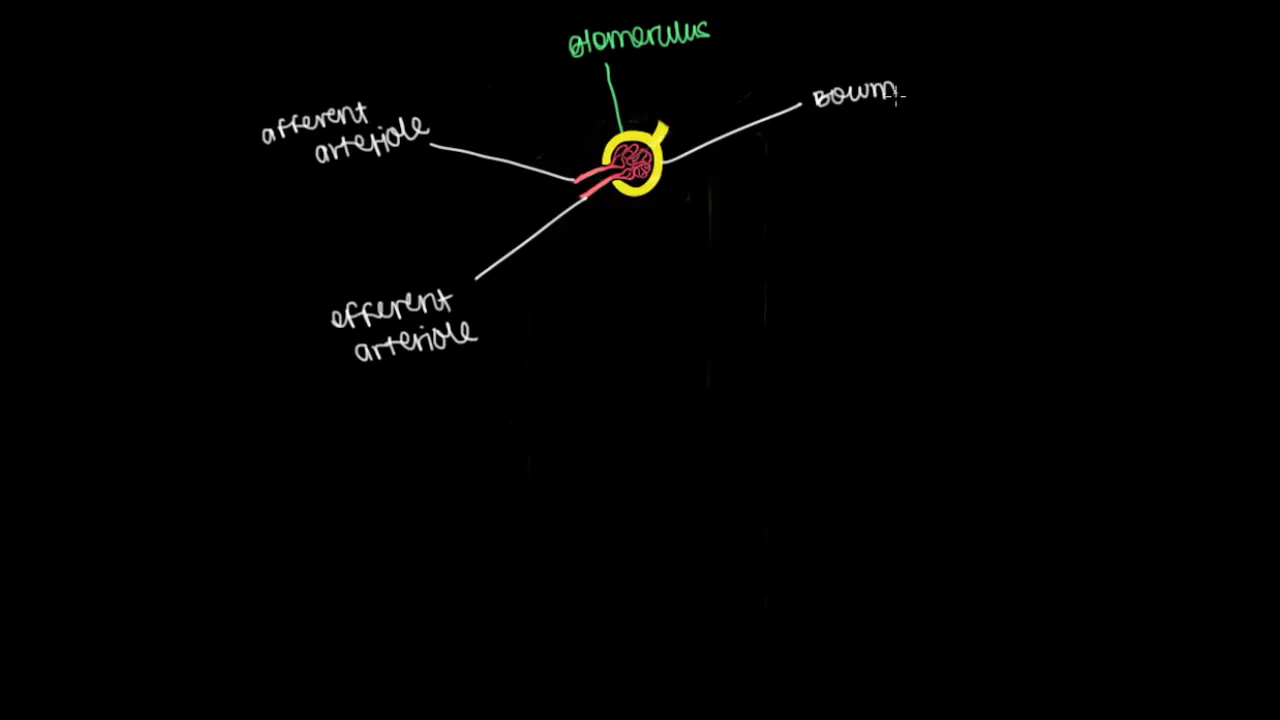 glomerulus
Bowm
afferent
arteriole
efferent
arteriole